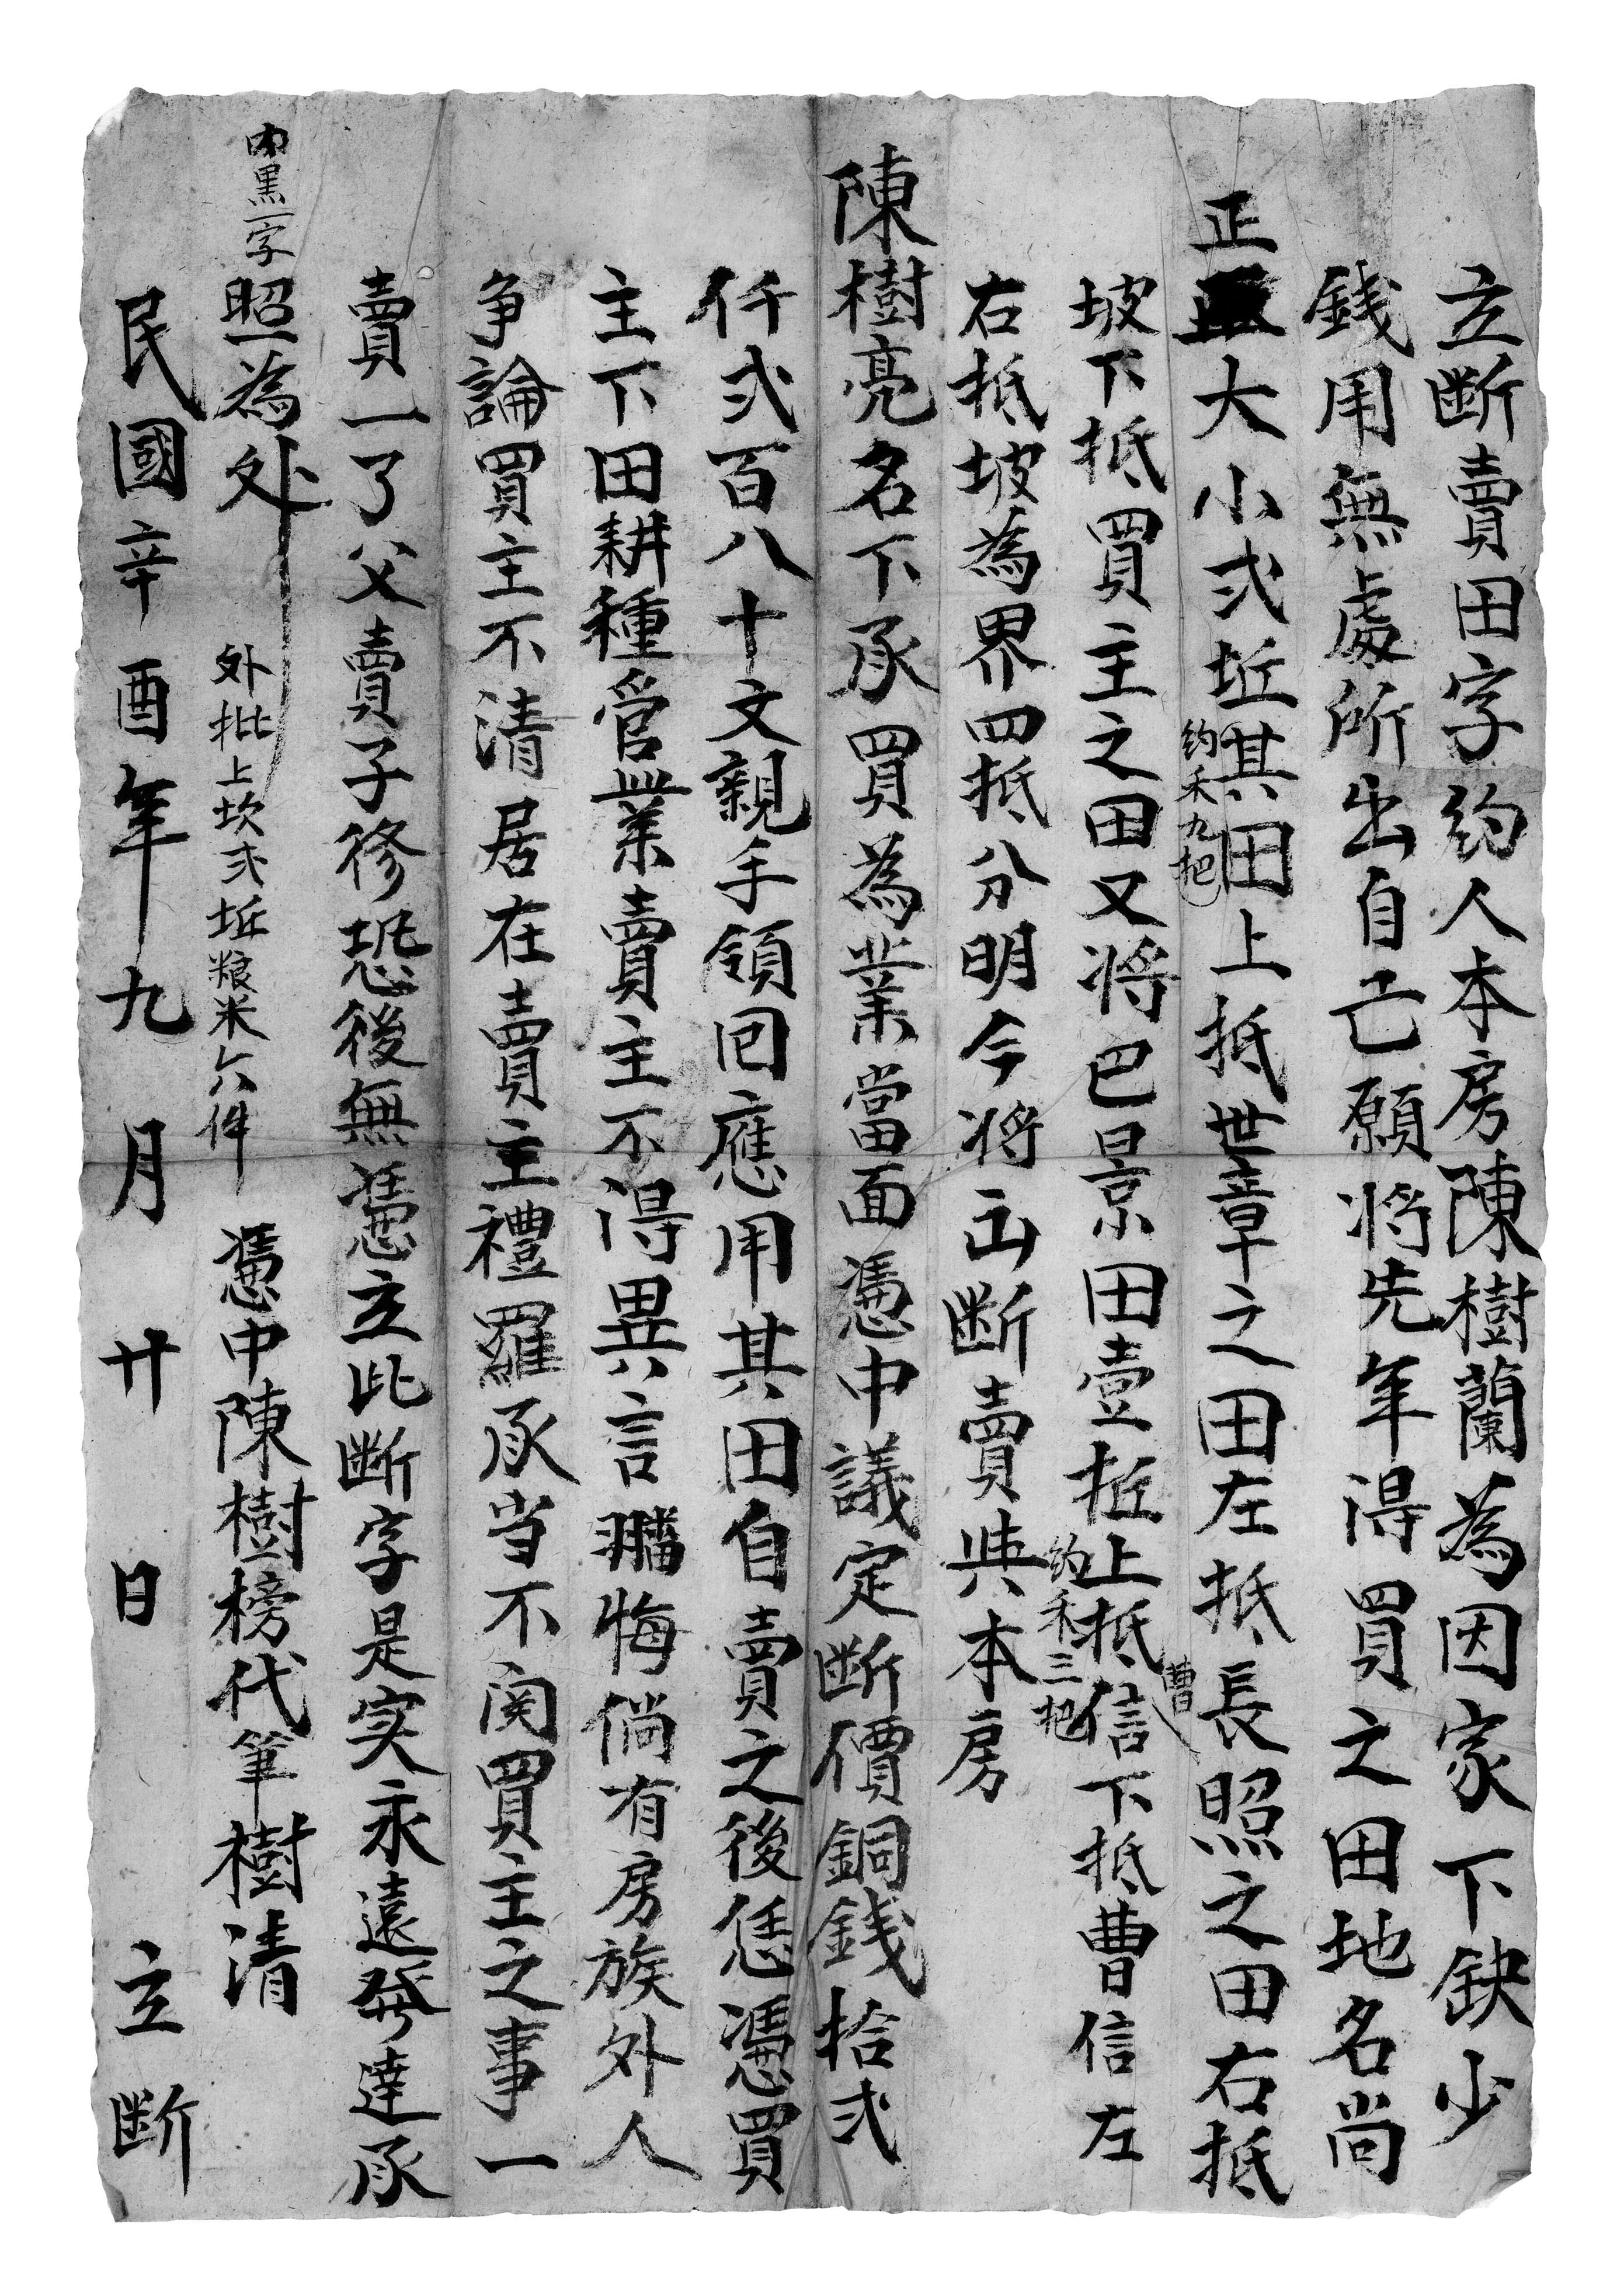 立断賣田字約人本房陳樹蘭為因家下缺少
錢用無處所出自己願將先年得買之田地名尚
正大小弍坵其田上抵世章之田左抵長照之田右抵
約禾九把
坡下抵買主之田又将巴景田壹坵上抵信下抵曹信左
曹
約禾三把
右抵坡為界四抵分明今将出断賣與本房
陳樹亮名下承買為業當面憑中議定断價銅錢拾弍
仟弍百八十文親手領回應用其田自賣之後恁憑買
主下田耕種管業賣主不得異言翻悔倘有房族外人
争論買主不清居在賣主禮羅承当不関買主之事一
賣一了父賣子修恐後無憑立此断字是实永遠發達承
照為处
内黑一字
外批上坎弍坵粮米六件
憑中陳樹榜代筆樹清
民國辛酉年九月廿日立断